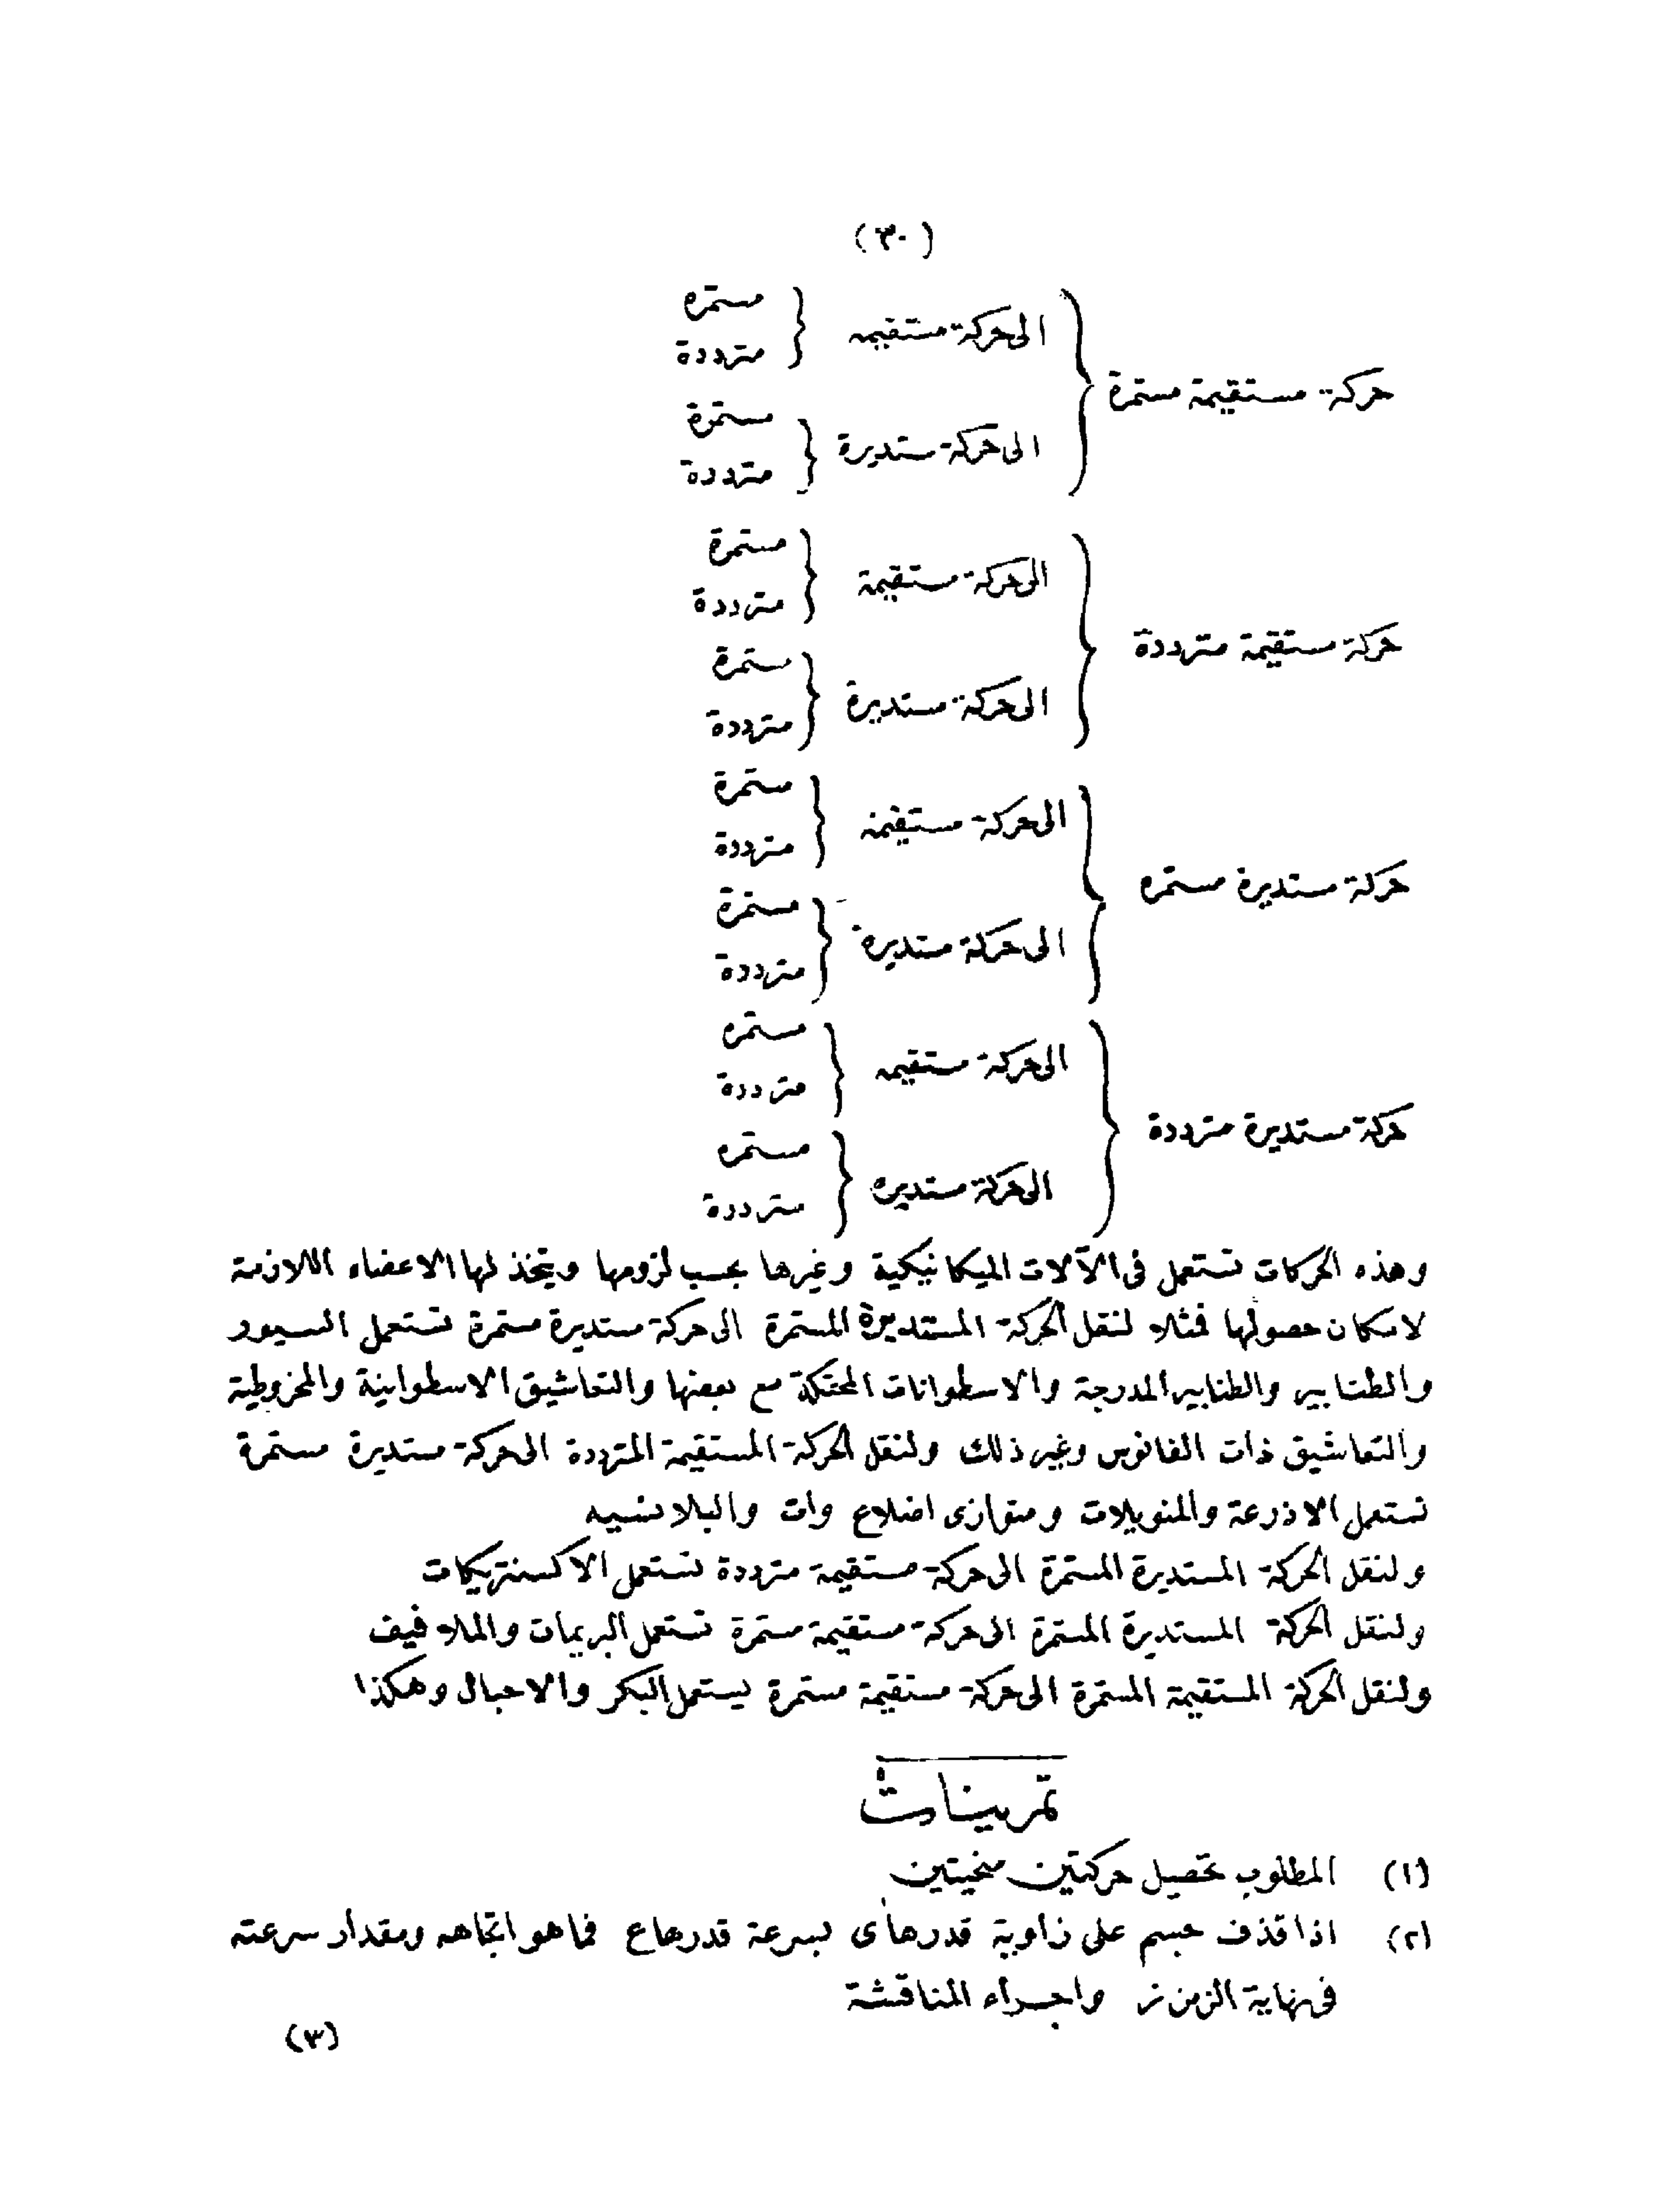 (٣٠)
حركة مستقيمة مستمرة
الى حركة مستقيمه
مستمره
مترددة
الى حركة ستديرة
مستمرة
مترددة
حركة مستقيمة مترددة
الى حركة مستقيمة
مستمرة
مترددة
الى حركة مستديرة
ستمرة
مترددة
حركة مستديرة مستمره
الى حركة مستقيمة
ستمرة
مترددة
الى حركة مستديره
مستمرة
مترددة
حركة مستديرة مترددة
الى حركة ستقيمه
مستمره
مترددة
الى حركة مستديره
مستمره
مترددة
وهذه الحركات تستعمل فى الآلات الميكانيكية وغيرها بحسب لزومها ويتخذ لها الاعضاء اللازمة
لامكان حصولها فمثلا لنقل الحركة المستديرة المستمرة الى حركة مستديرة مستمرة تستعمل السيور
والطنابير والطنابير المدرجة والاسطوانات المحتكة مع بعضها والتعاشيق الاسطوانية والمخروطية
والتعاشيق ذات الفانوس وغير ذلك ولنقل الحركة المستقيمة المترددة الى حركة مستديرة مستمرة
تستعمل الاذرعة والمنويلات ومتوازى اضلاع وات والبلانسيه
ولنقل الحركة المستديرة المستمرة الى حركة مستقيمة مترددة تستعمل الاكسنتريكات
ولنقل الحركة المستديرة المستمرة الى حركة مستقيمة مستمرة تستعمل البريمات والملافيف
ولنقل الحركة المستقيمة المستمرة الى حركة مستقيمة مستمرة يستعمل البكر والاحبال وهكذا
تمرينات
(١) المطلوب تحصيل حركتين منحيتين
(٢) اذا قذف جسم على زاوية قدرها ى بسرعة قدرها ع فما هو اتجاهه ومقدار سرعته
فى نهاية الزمن ز واجراء المناقشة
(٣)